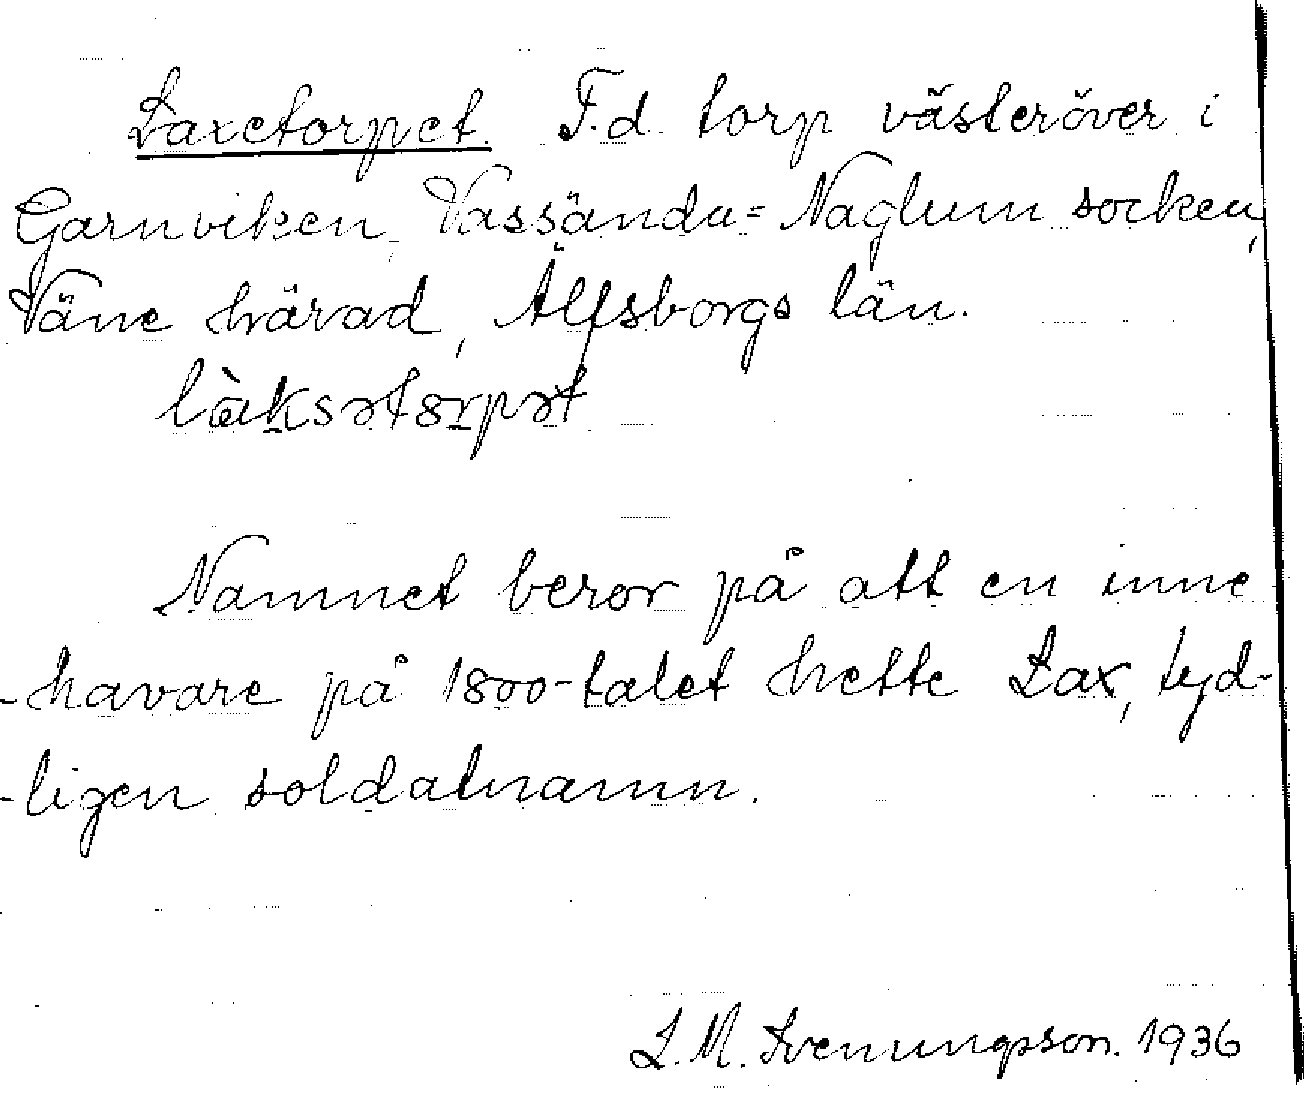 Laxetorpet. F.d. torp västeröver i
Garnviken, Vassända=Naglum socken,
Väne härad, Älfsborgs län.
làksətorpət
Namnet beror på att en inne
-havare på 1800-talet hette Lax, tyd-
-ligen soldatnamn.
L. M. Svenungsson. 1936